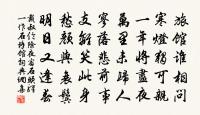 旅館誰相問
寒燈獨可親
一年將盡夜
萬里未歸人
寥落悲前事
支離笑此身
愁顏與衰鬢
明日又逢春
戴叔倫除夜宿石頭驛
一作石橋館詞典網集